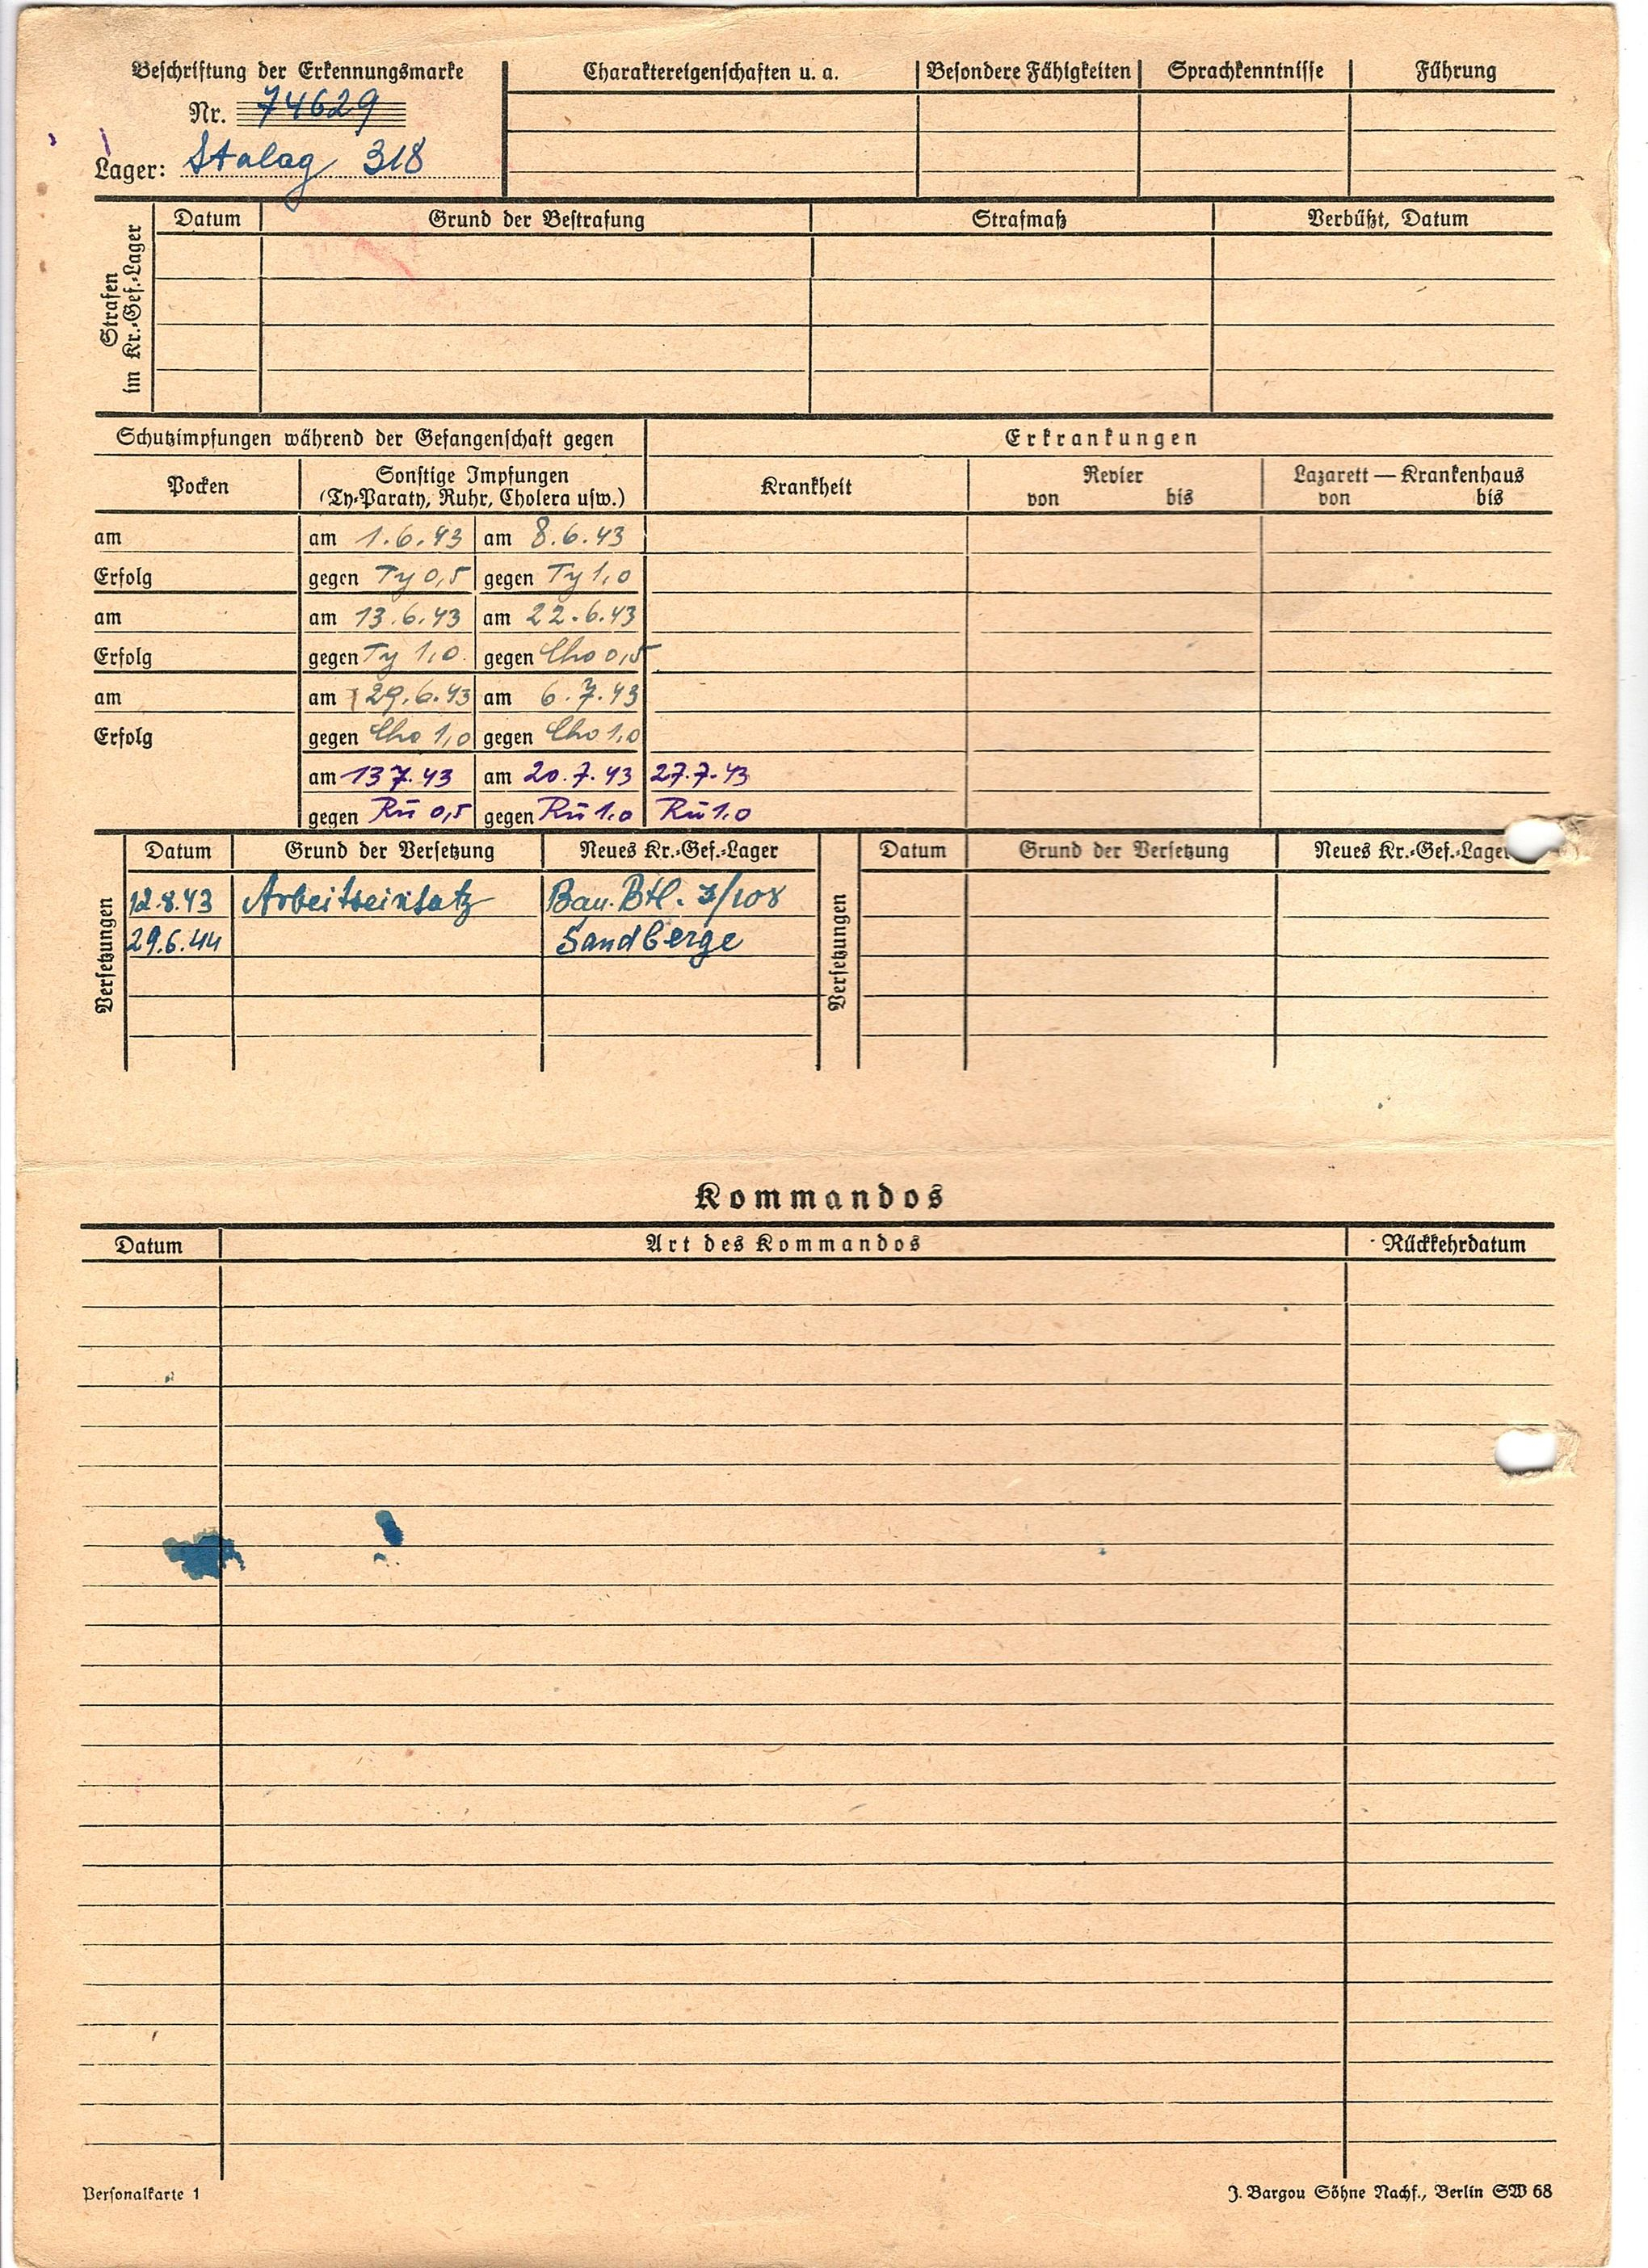 Beschriftung der Erkennungsmarke
Nr. 74629
Lager: Stalag 318
Charaktereigenschaften u. a. Besondere Fähigkeiten Sprachkenntnisse Führung
Strafen
im Kr.-Gef.-Lager
Datum Grund der Bestrafung Strafmaß Verbüßt, Datum
Schutzimpfungen während der Gefangenschaft gegen Erkrankungen
Pocken
Sonstige Impfungen
(Ty-Paraty, Ruhr, Cholera usw.)
Krankheit
Revier
von bis
Lazarett — Krankenhaus
von bis
am am 1.6.43 am 8.6.43
Erfolg gegen Ty 0,5 gegen Ty 1,0
am am 13.6.43 am 22.6.43
Erfolg gegen Ty 1,0 gegen Cho 0,5
am am 29.6.43 am 6.7.43
Erfolg gegen Cho 1,0 gegen Cho 1,0
am 13 7.43 am 20.7.43 27.7.43
gegen Rū 0,5 gegen Rū 1.0 Rū 1.0
Versetzungen
Datum Grund der Versetzung Neues Kr.-Gef.-Lager
12.8.43 Arbeitseinsatz Bau. Btl. 3/108
29.6.44 Sandberge
Versetzungen
Datum Grund der Versetzung Neues Kr.-Gef.-Lager
Kommandos
Datum Art des Kommandos Rückkehrdatum
Personalkarte 1
J. Bargou Söhne Nachf., Berlin SW 68